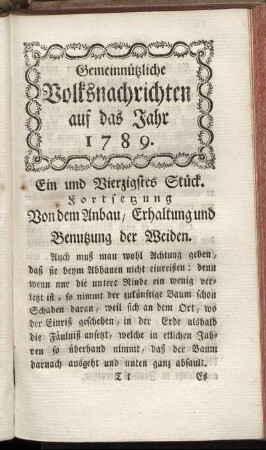 Gemeinnützliche
Volksnachrichten
auf das Jahr
1789.
Ein und Vierzigstes Stück.
Fortsetzung
Von dem Anbau, Erhaltung und
Benutzung der Weiden.
Auch muß man wohl Achtung geben,
daß sie beym Abhauen nicht einreißen: denn
wenn nur die untere Rinde ein wenig ver-
letzt ist, so nimmt der zukünftige Baum schon
Schaden daran, weil sich an dem Ort, wo
der Einriß geschehen, in der Erde alsbald
die Fäulniß ansetzt, welche in etlichen Jah-
ren so überhand nimmt, daß der Baum
darnach ausgeht und unten ganz abfault.
T t Es